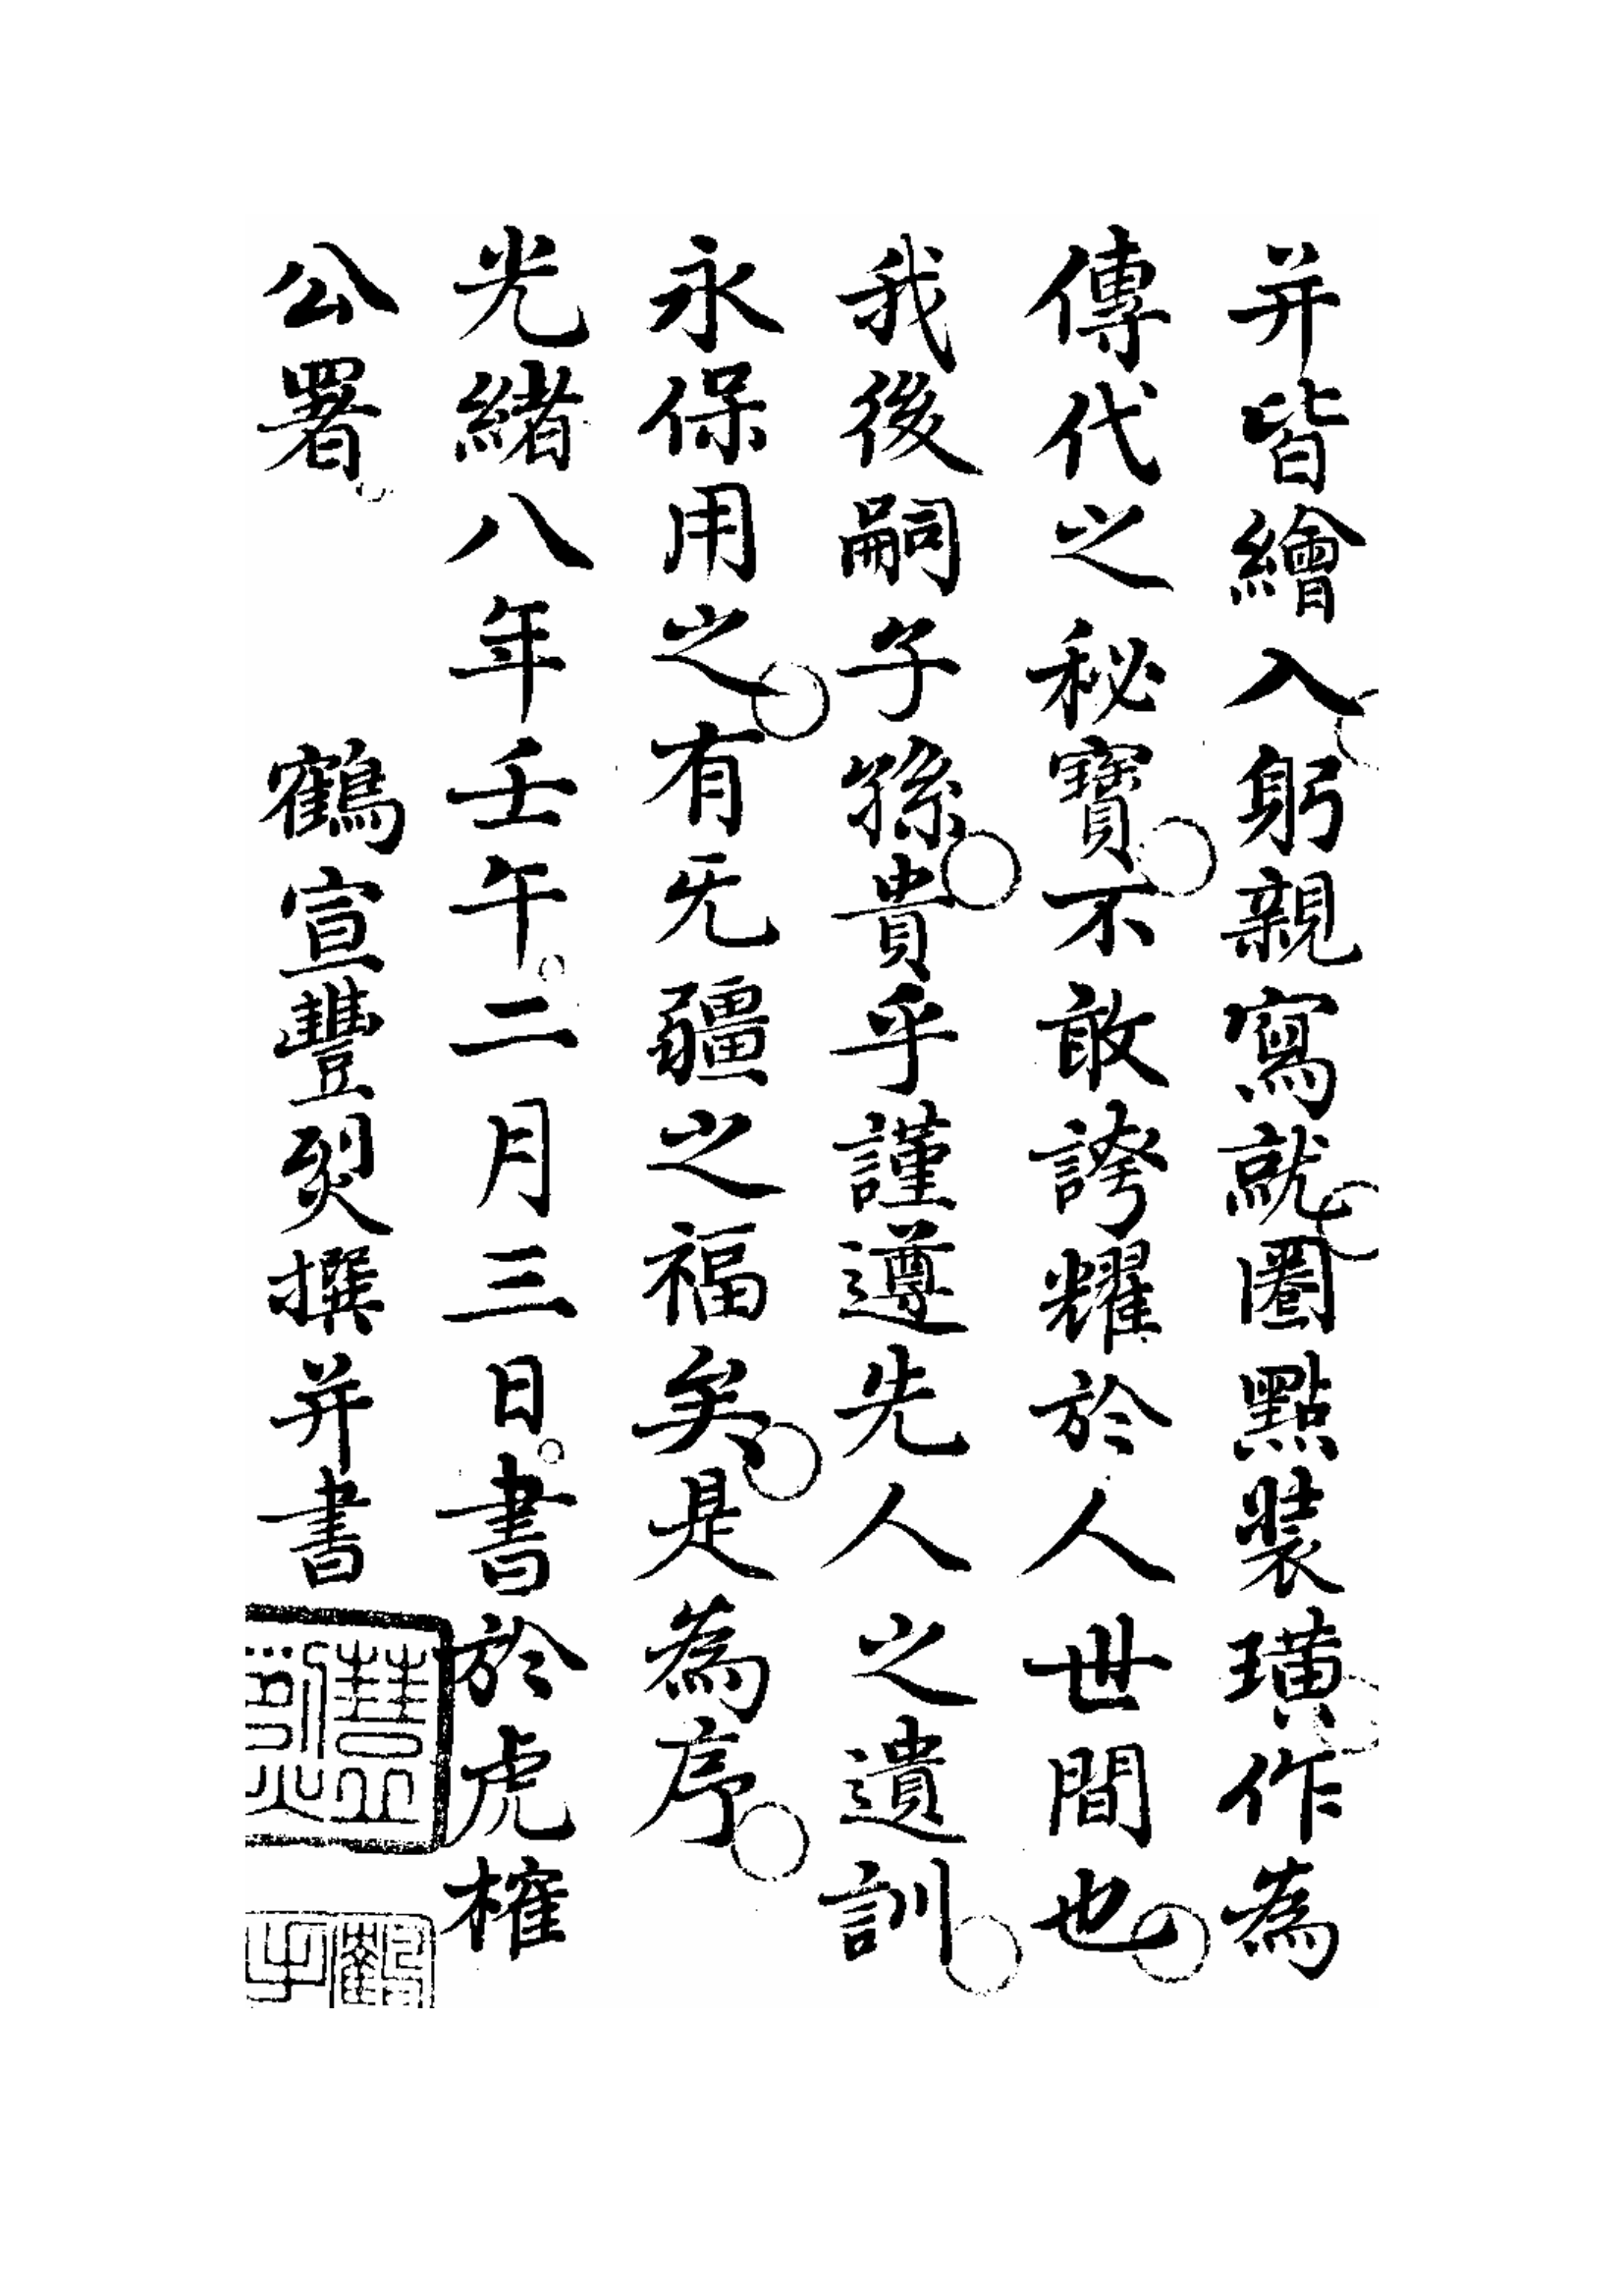 并皆繪入躬親寫就圈點裝璜作為
傳代之秘寶不敢誇耀於人世間也
我後嗣子孫貴乎謹遵先人之遺訓
永保用之有无疆之福矣是為序
光緒八年壬午二月三日書於虎榷
公署　鶴宣豐烈撰并書